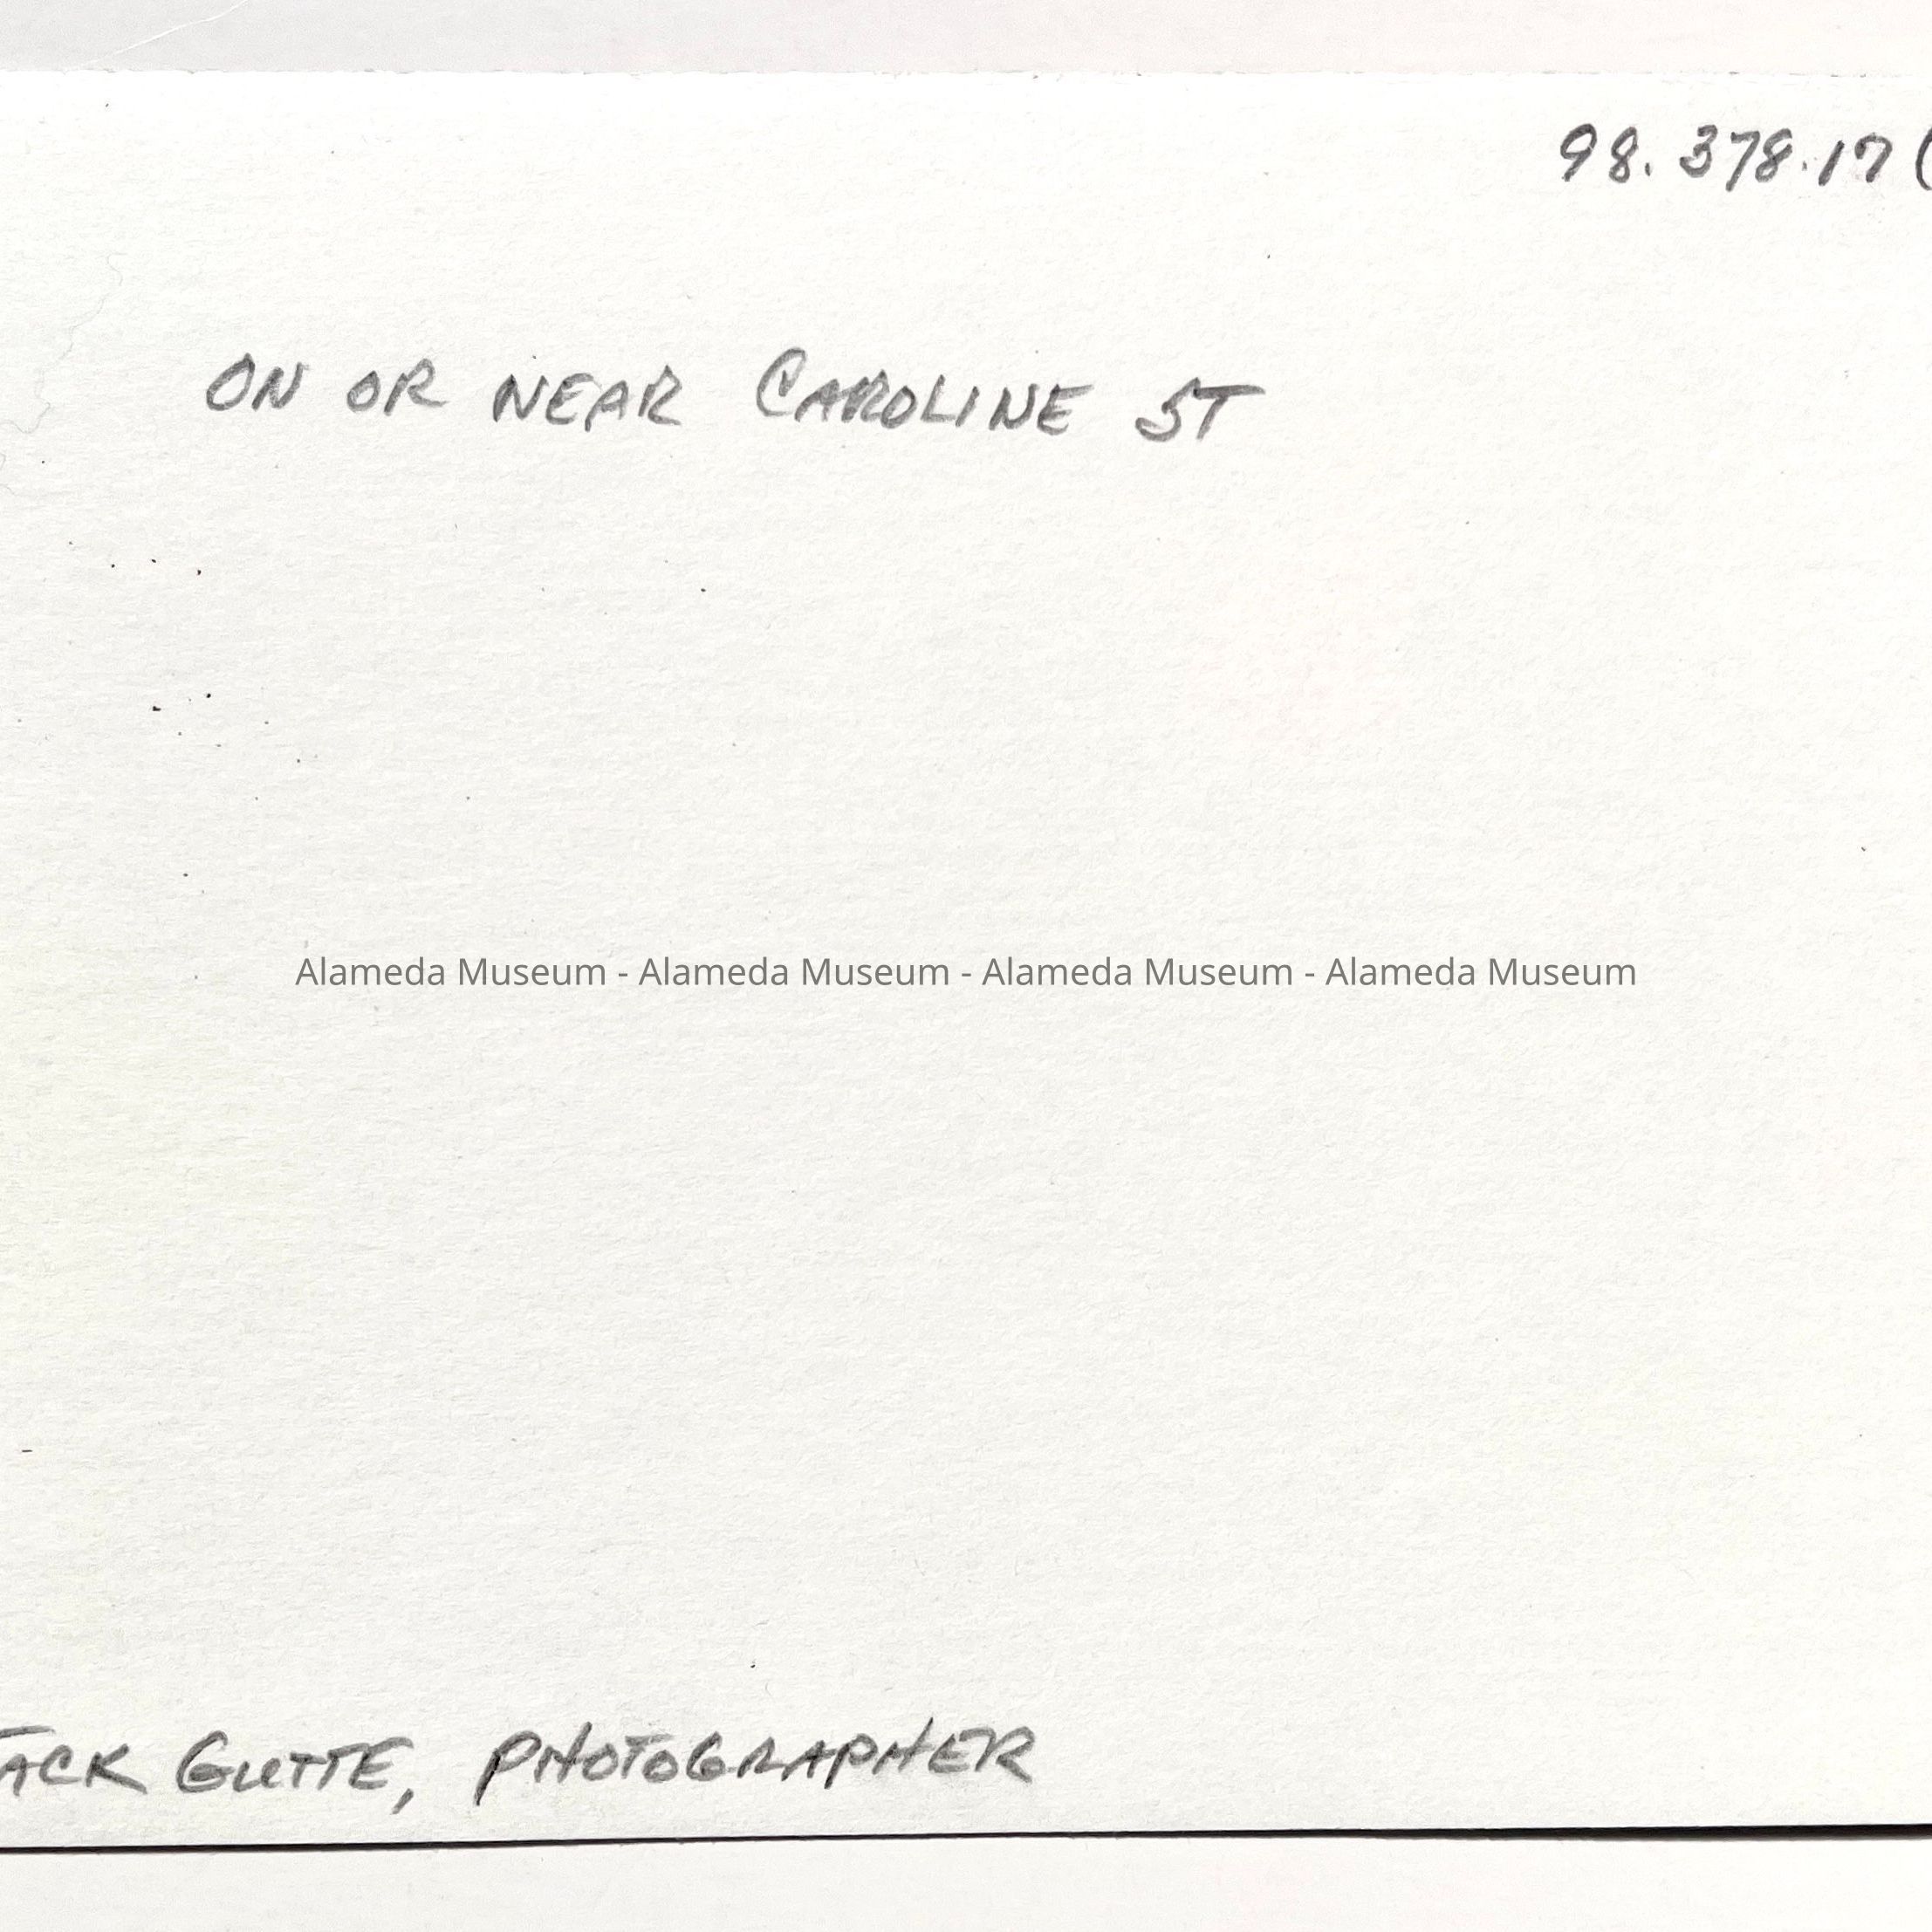 98.378.17 (
ON OR NEAR CAROLINE ST
Alameda Museum - Alameda Museum - Alameda Museum - Alameda Museum
JACK GUTTE, PHOTOGRAPHER